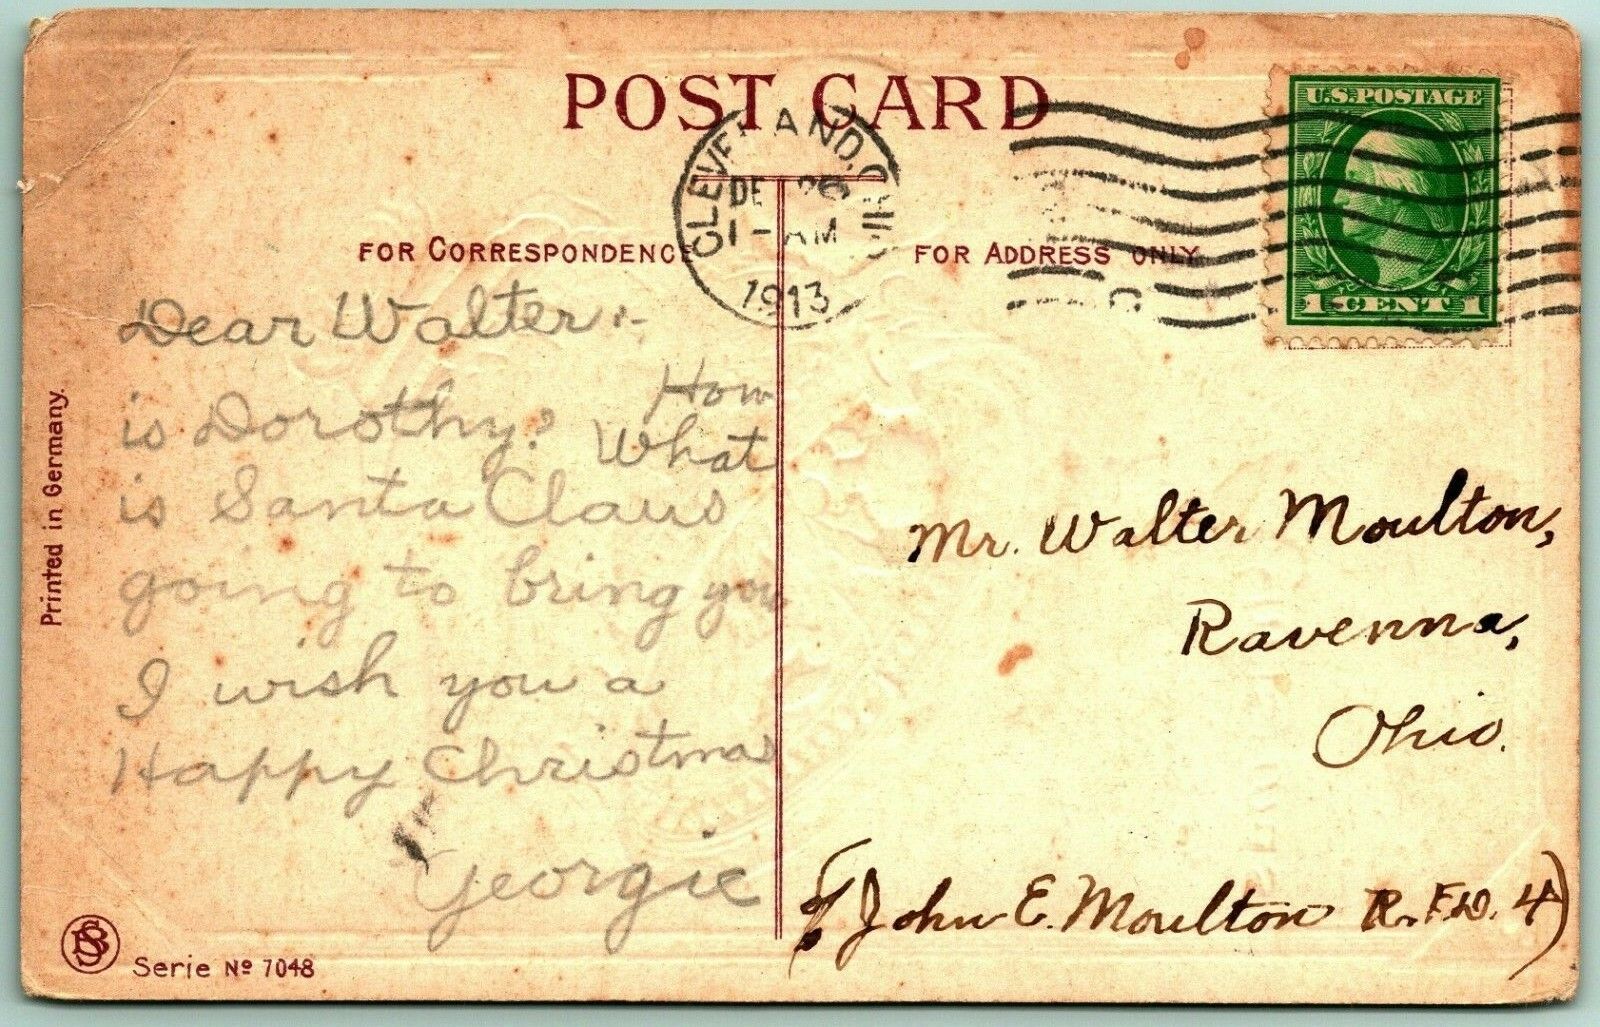 POST CARD
CLEVELAND, OHIO
DE 26
1-AM
1913
U.S. POSTAGE
1 CENT 1
FOR CORRESPONDENCE
FOR ADDRESS ONLY
Dear Walter:-
How
is Dorothy? What
is Santa Claus
going to bring you
I wish you a
Happy Christmas
Georgie
Mr. Walter Moulton,
Ravenna,
Ohio.
(% John E. Moulton R.F.D. 4)
Printed in Germany.
Serie No 7048